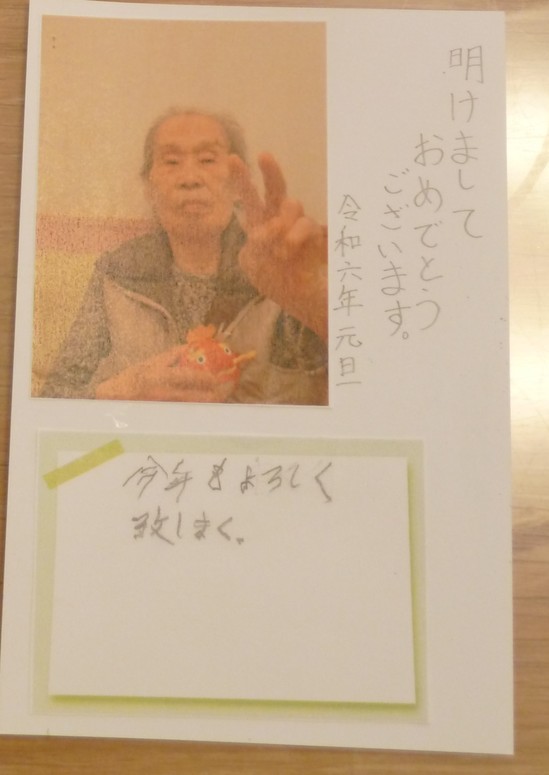 明けまして
おめでとう
ございます。
令和六年 元旦
今年もよろしく
致しまく。